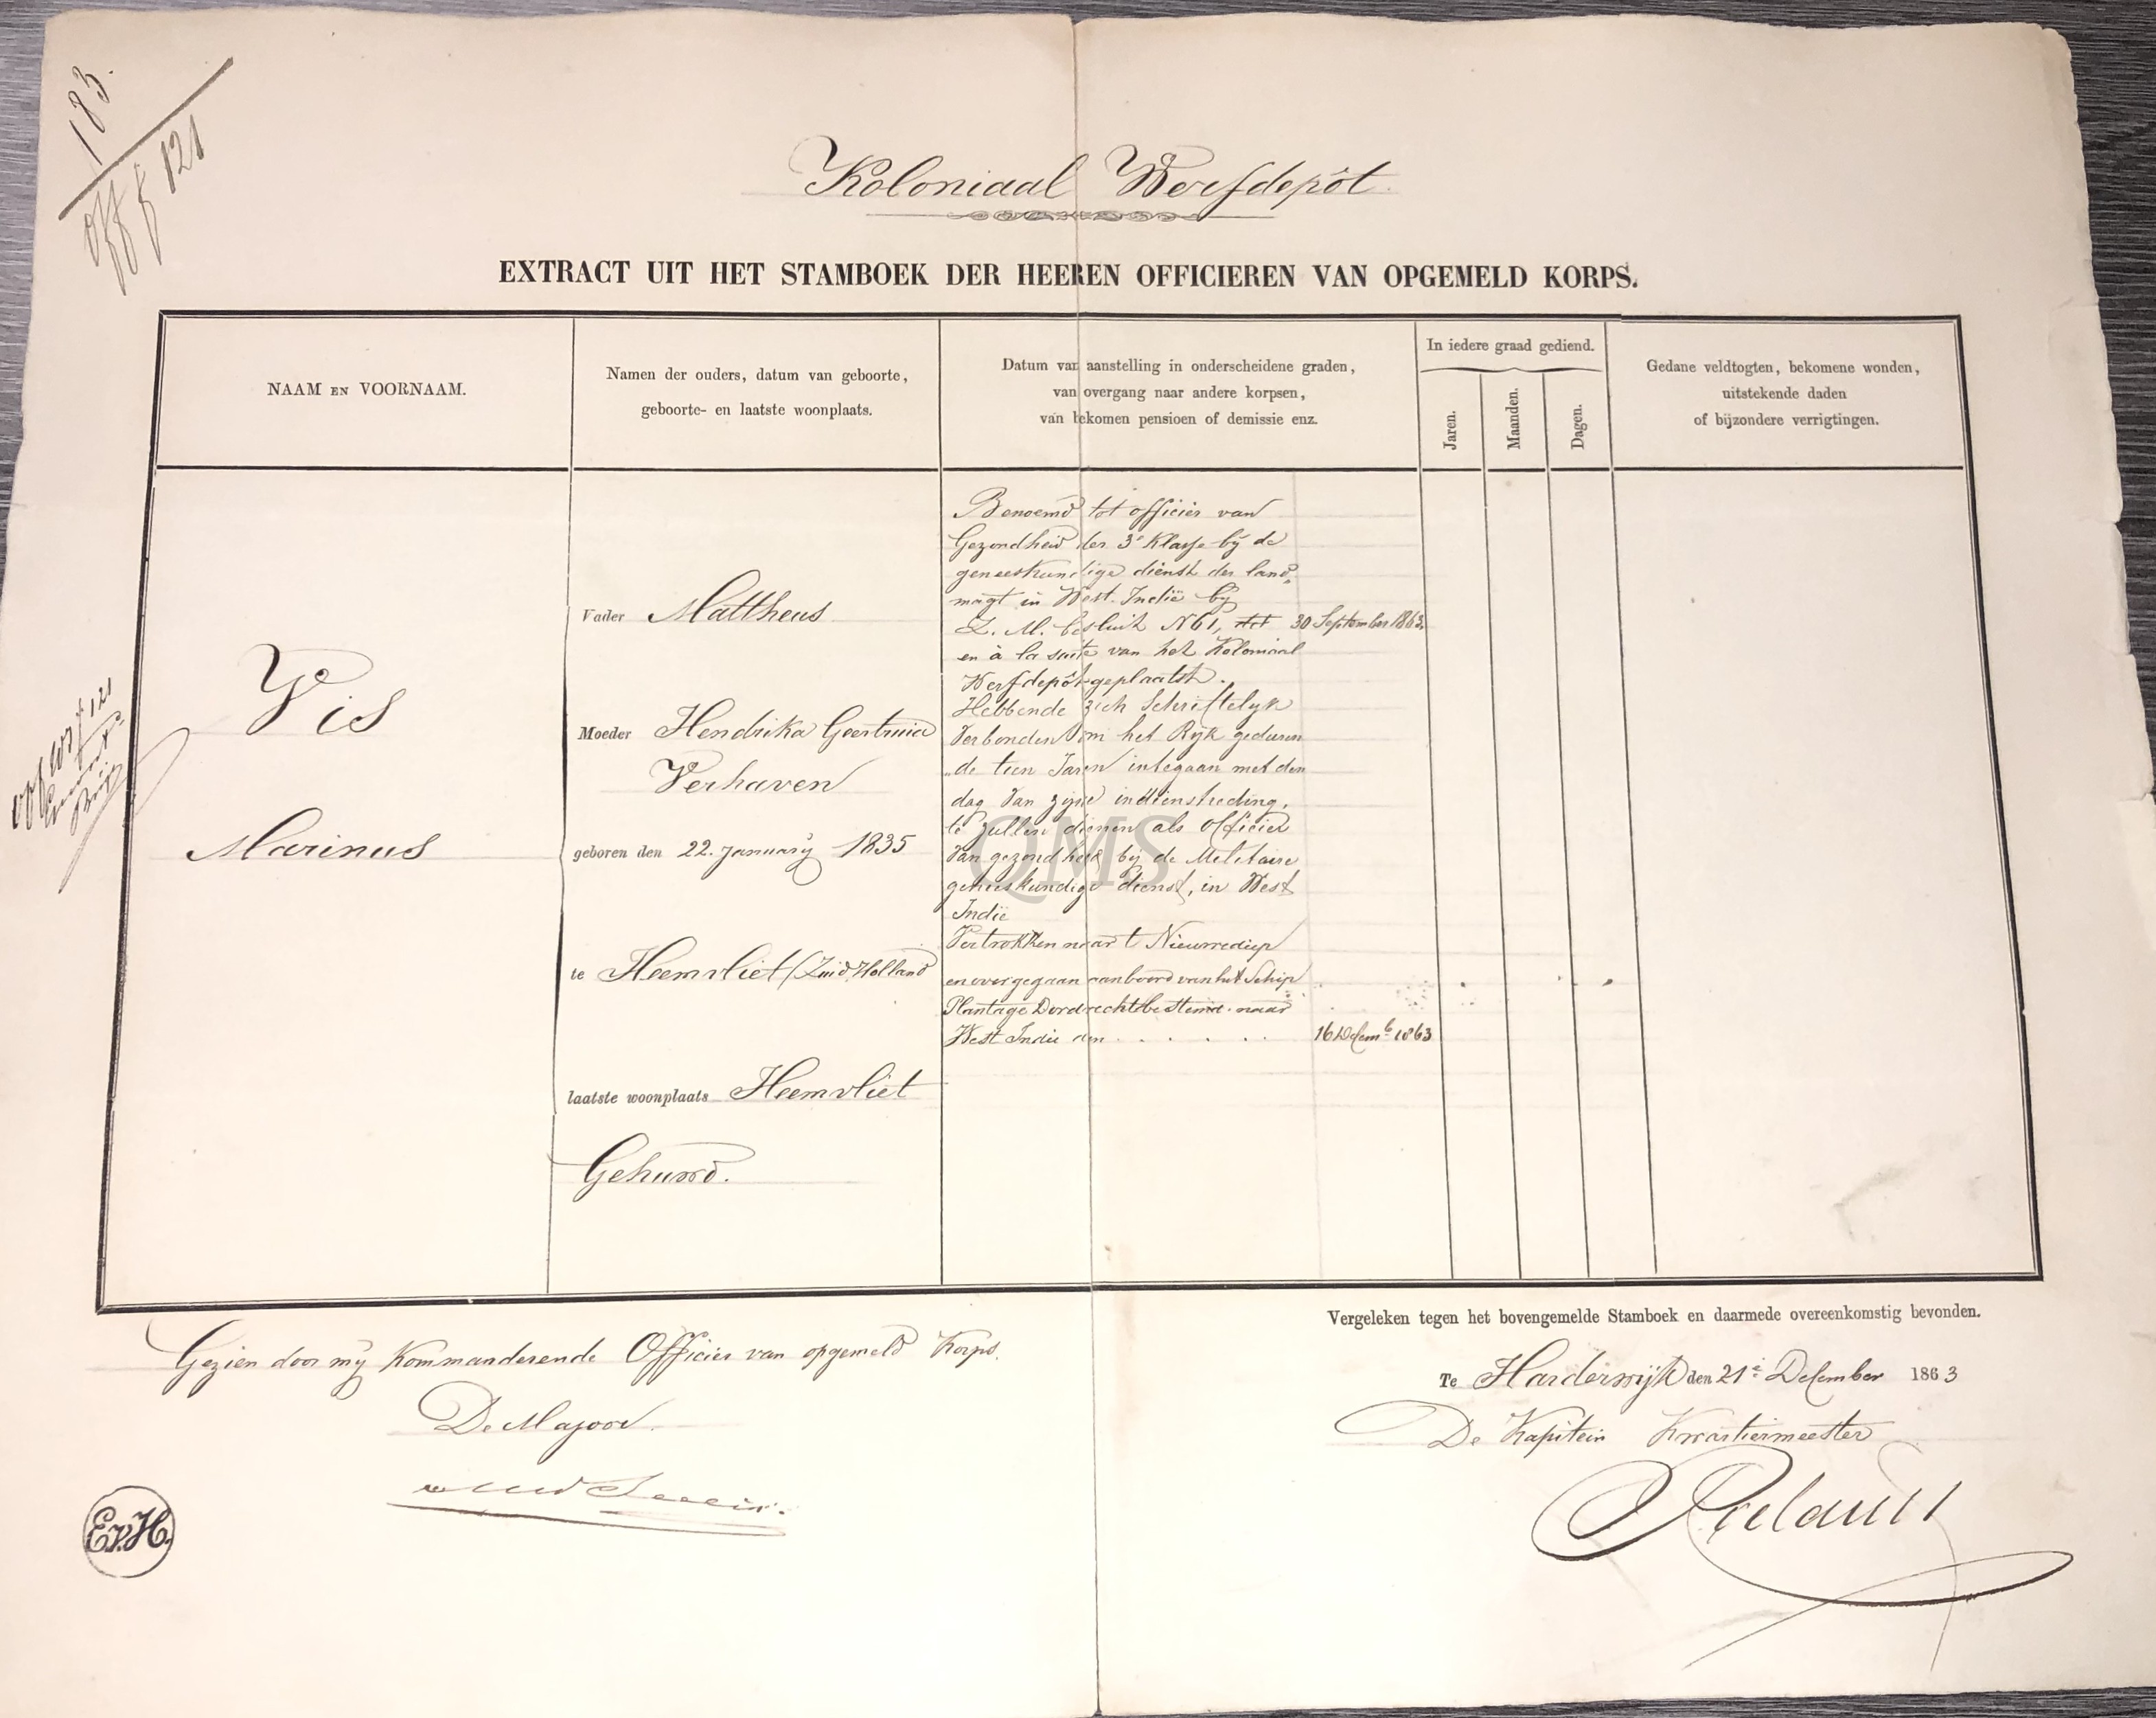 183.
off f 121
Koloniaal Werfdepôt.
EXTRACT UIT HET STAMBOEK DER HEEREN OFFICIEREN VAN OPGEMELD KORPS.
NAAM EN VOORNAAM.
Namen der ouders, datum van geboorte,
geboorte- en laatste woonplaats.
Datum van aanstelling in onderscheidene graden,
van overgang naar andere korpsen,
van bekomen pensioen of demissie enz.
In iedere graad gediend.
Jaren.
Maanden.
Dagen.
Gedane veldtogten, bekomene wonden,
uitstekende daden
of bijzondere verrigtingen.
Vis
Marinus
Vader Mattheus
Moeder Hendrika Geertruid
Verhaven
geboren den 22. January 1835
te Heenvliet (Zuid Holland
laatste woonplaats Heenvliet
Gehuwd.
Benoemd tot officier van
Gezondheid der 3e Klasse bij de
geneeskundige dienst der land„
magt in West-Indië bij
Z. M. besluit N61, 30 September 1863.
en à la suite van het Koloniaal
Werfdepôt geplaatst.
Hebbende zich Schriftelyk
Verbonden om het Ryk geduren
„de tien Jaren integaan met den
dag van zijne indiensttreding,
te zullen dienen als officier
Van gezondheid bij de Militaire
geneeskundige dienst, in West
Indië
Vertrokken naar t Nieuwediep
en overgegaan aan boord van het Schip
Plantage Dordrecht bestemd naar
West Indie den . . . . . . 16 Decemb 1863
QMS
Vergeleken tegen het bovengemelde Stamboek en daarmede overeenkomstig bevonden.
Gezien door mij Kommanderende Officier van opgemeld Korps.
De Majoor.
Te Harderwijk den 21e December 1863
De Kapitein Kwartiermeester
E.v.H.